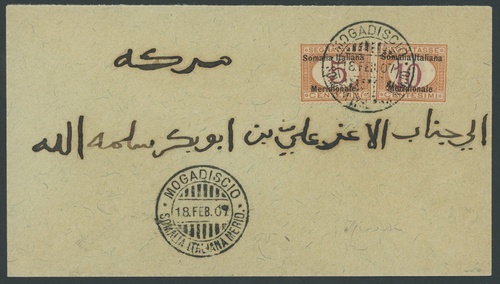 SEGNATASSE SEGNATASSE
Somalia Italiana Somalia Italiana
5 10
Meridionale Meridionale
CENTESIMI CENTESIMI
MOGADISCIO
18.FEB.07
مركه
الي جناب الاعز علي بن ابوبكر سلمه الله
MOGADISCIO
18.FEB.07
SOMALIA ITALIANA MERID.